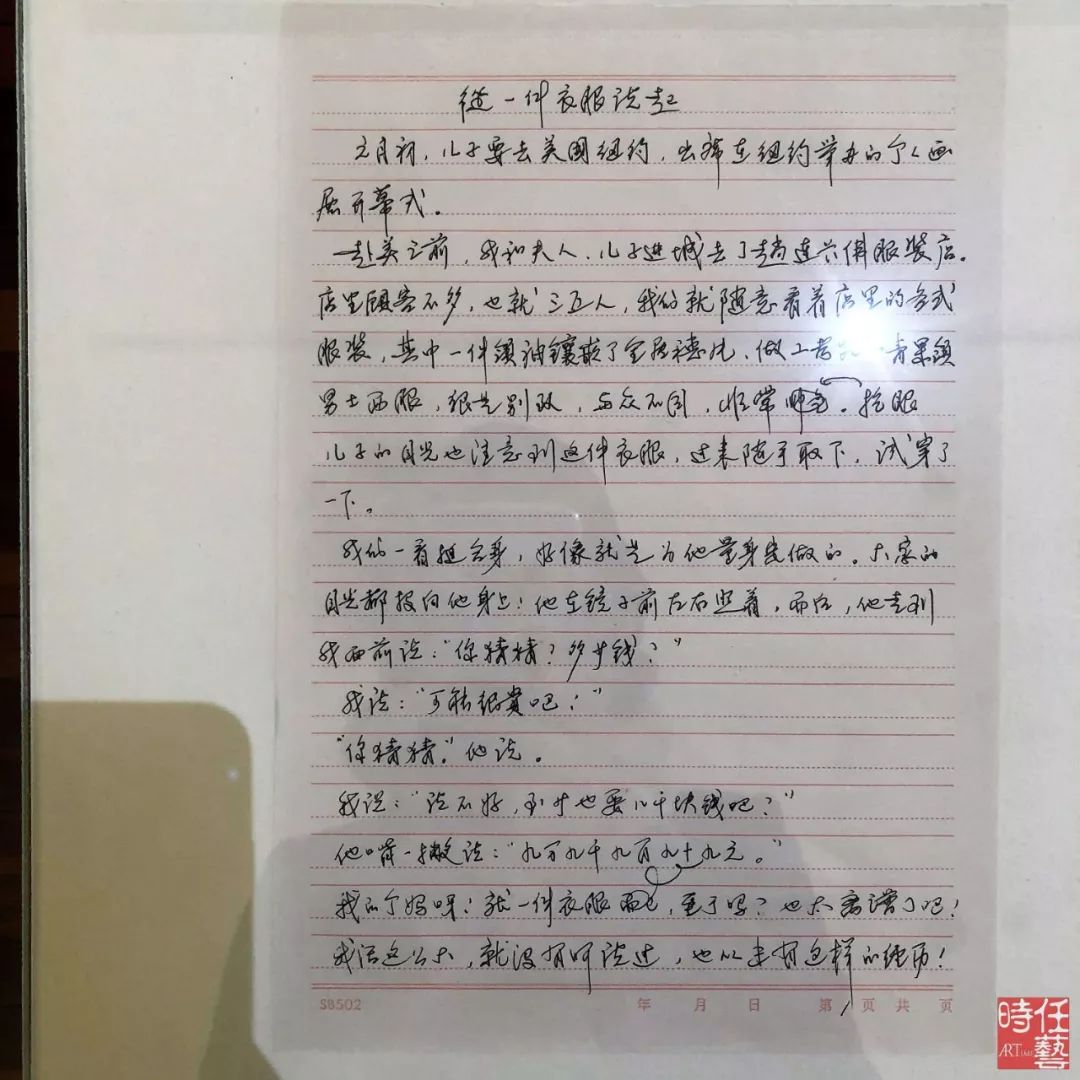 从一件衣服说起
元月初，儿子要去美国纽约，出席在纽约举办的个人画
展开幕式。
赴美之前，我和夫人、儿子进城去了趟连六俱服装店。
店里顾客不多，也就三五人，我们就随意看着店里的各式
服装，其中一件领袖镶嵌了金属 做工 青果领
男士西服，很是别致，与众不同，非常 抢眼
儿子的目光也注意到这件衣服，过来随手取下，试穿了
一下。
我们一看挺合身，好像就是为他量身定做的。大家的
目光都投向他身上！他在镜子前左右照着，而后，他走到
我面前说：“你猜猜？多少钱？”
我说：“可能很贵吧！”
“你猜猜。”他说。
我说：“说不好，至少也要几千块钱吧？”
他嘴一撇说：“九万九千九百九十九元。”
我的个妈呀！就一件衣服而已，至于吗？也太离谱了吧！
我活这么大，就没有听说过，也从未有这样的经历！
SB502 年 月 日 第1页共 页
時任
ARTIME 藝